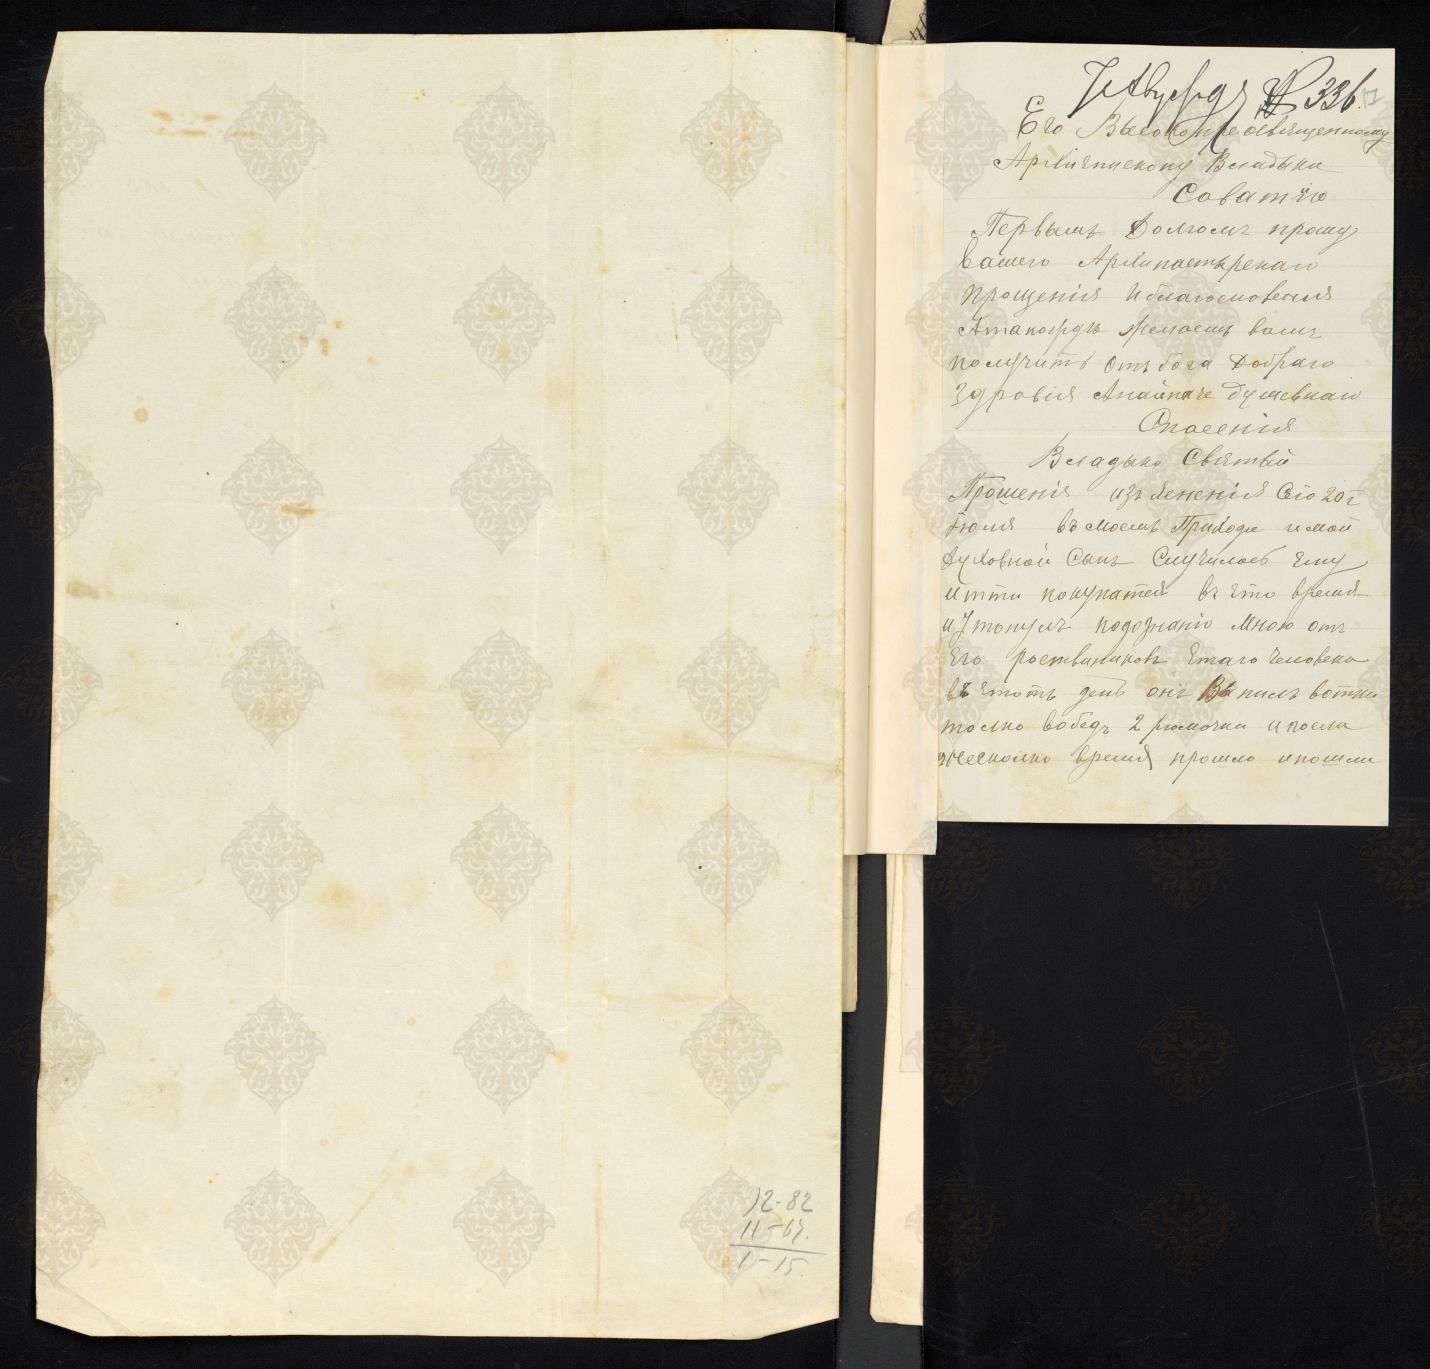 12-82
11-67.
1-15.
№ 336.
Его Высокопреосвященному
Архиепископу Владыки
Саватѣю
Первымъ Долгомъ прошу
Вашего Архипастырскаго
прощенія И благословенія
Атакождѣ желаемъ вамъ
получитъ отъ бога Добраго
Здровія Анайпаче душевнаго
Спасенія
Владыко Святый
Прошенія изъ
Іюля въ моемъ Приходе имой
духовной Сынъ Случилось Ему
Итти покупатся въ Ето время
иУтонулъ подознанію Мною отъ
Его Етаго человека
въ Етотъ день онъ Выпилъ вотки
толко вобедъ 2 рюмочки и после
несколко время прошло ипошли